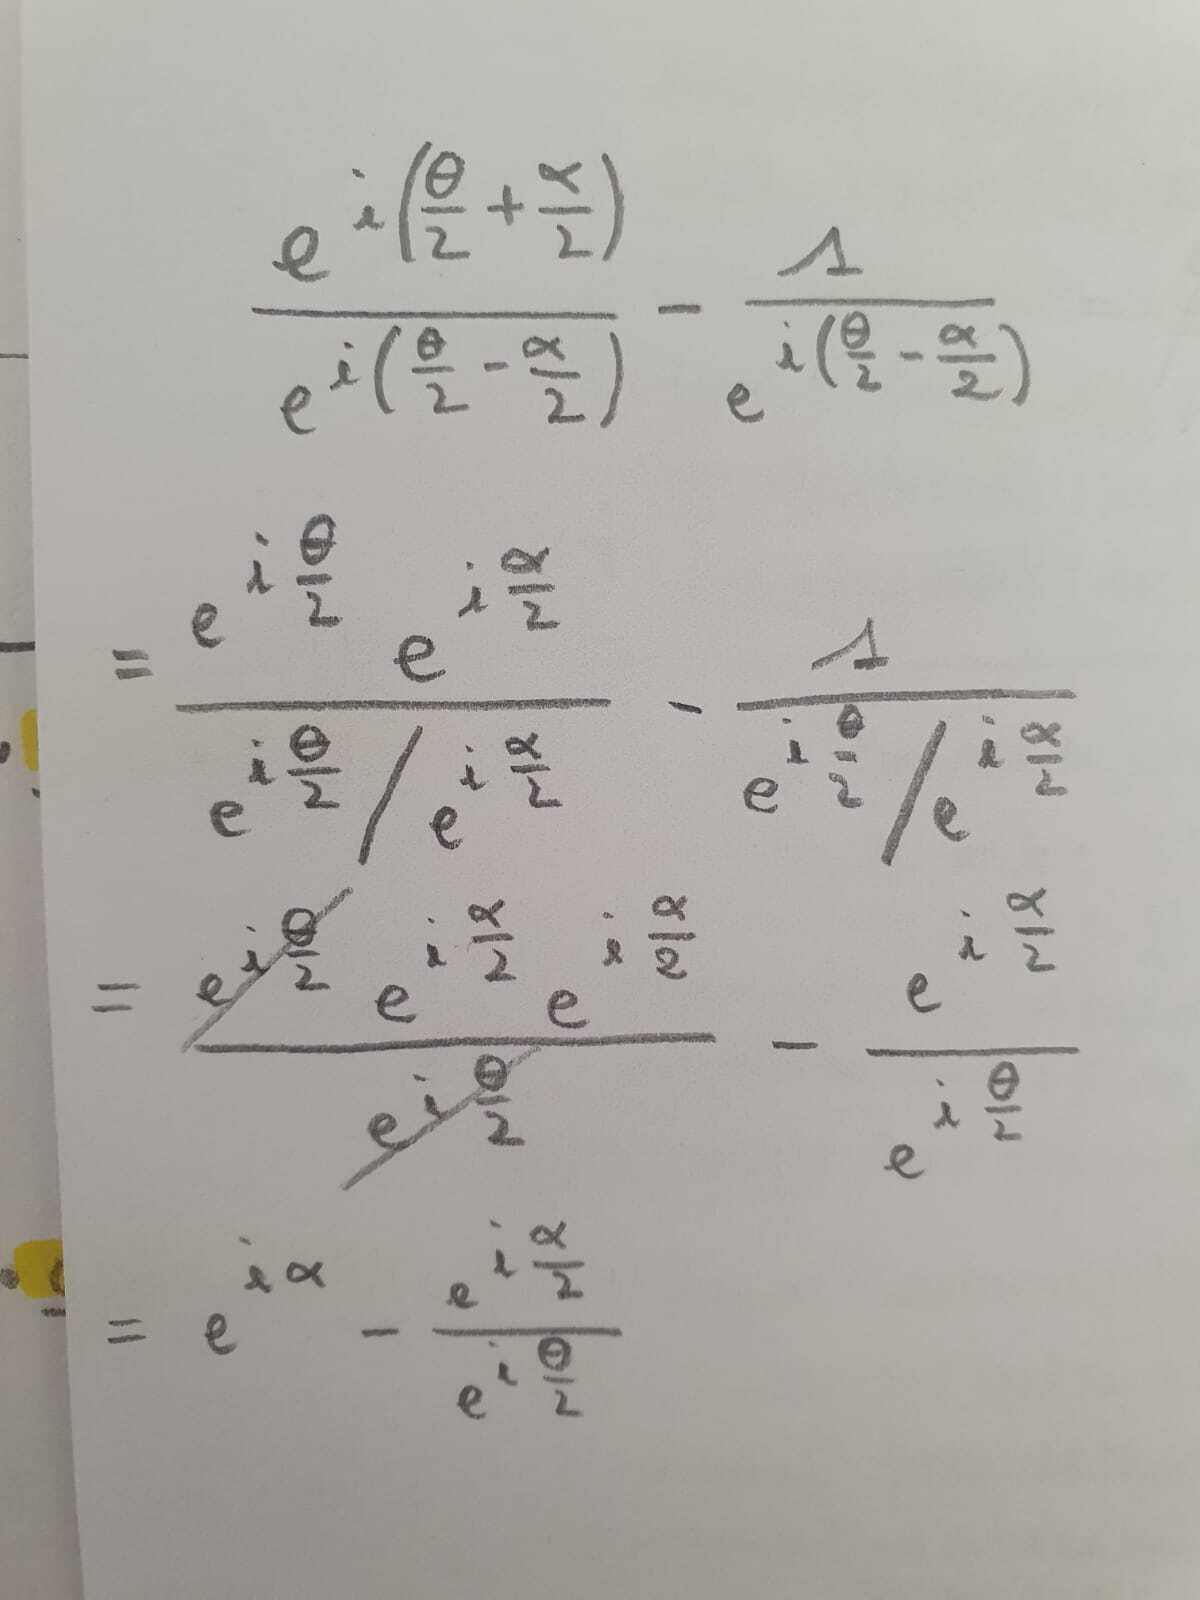 e^{i(θ/2 + α/2)} / e^{i(θ/2 - α/2)} - 1 / e^{i(θ/2 - α/2)}
= (e^{i θ/2} e^{i α/2}) / (e^{i θ/2} / e^{i α/2}) - 1 / (e^{i θ/2} / e^{i α/2})
= (e^{i θ/2} e^{i α/2} e^{i α/2}) / e^{i θ/2} - e^{i α/2} / e^{i θ/2}
= e^{iα} - e^{i α/2} / e^{i θ/2}